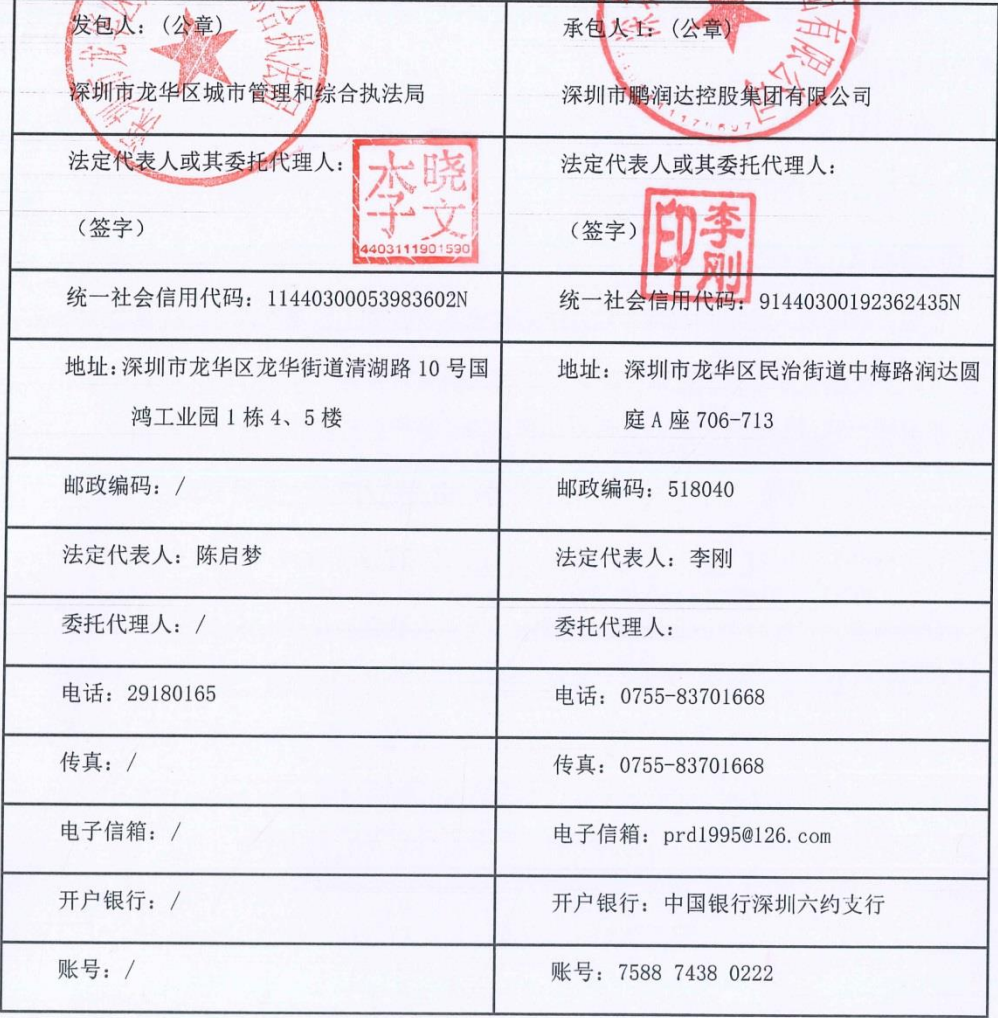 发包人：(公章)
深圳市龙华区城市管理和综合执法局
承包人 1：(公章)
深圳市鹏润达控股集团有限公司
法定代表人或其委托代理人：
（签字）
李晓文
4403111901590
法定代表人或其委托代理人：
（签字）
李刚印
统一社会信用代码：11440300053983602N
统一社会信用代码：91440300192362435N
地址：深圳市龙华区龙华街道清湖路 10 号国
鸿工业园 1 栋 4、5 楼
地址：深圳市龙华区民治街道中梅路润达圆
庭 A 座 706-713
邮政编码：/
邮政编码：518040
法定代表人：陈启梦
法定代表人：李刚
委托代理人：/
委托代理人：
电话：29180165
电话：0755-83701668
传真：/
传真：0755-83701668
电子信箱：/
电子信箱：prd1995@126.com
开户银行：/
开户银行：中国银行深圳六约支行
账号：/
账号：7588 7438 0222